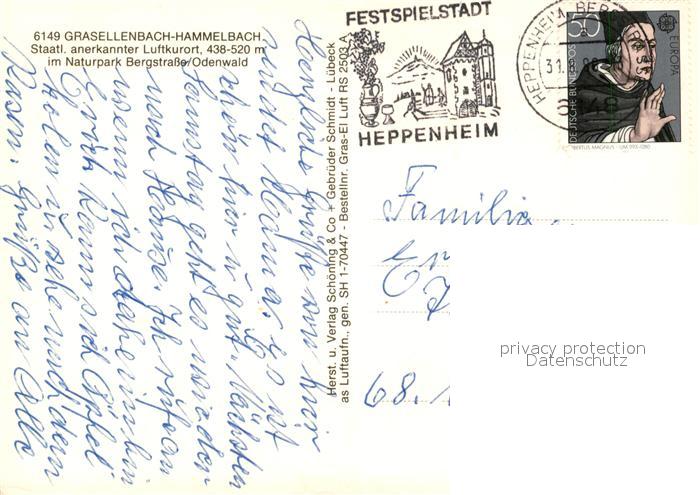 6149 GRASELLENBACH-HAMMELBACH
Staatl. anerkannter Luftkurort, 438-520 m
im Naturpark Bergstraße/Odenwald
Herzliche Grüße von hier
sendet Es ist
schön hier u. gut. Nächsten
Samstag geht es wieder
nach Hause. Ich rufe an
wenn ich daheim bin
Erich kann sich Äpfel
holen u. sehe nach dem
Rasen. Grüße an Alle
Herst. u. Verlag Schöning & Co + Gebrüder Schmidt - Lübeck
as Luftaufn., gen. SH 1-70447 - Bestellnr. Gras-El Luft RS 2503 A
FESTSPIELSTADT
HEPPENHEIM
HEPPENHEIM BERG
31.8.
50
EUROPA
DEUTSCHE BUNDESPOST
ALBERTUS MAGNUS
Familie
68.
privacy protection
Datenschutz